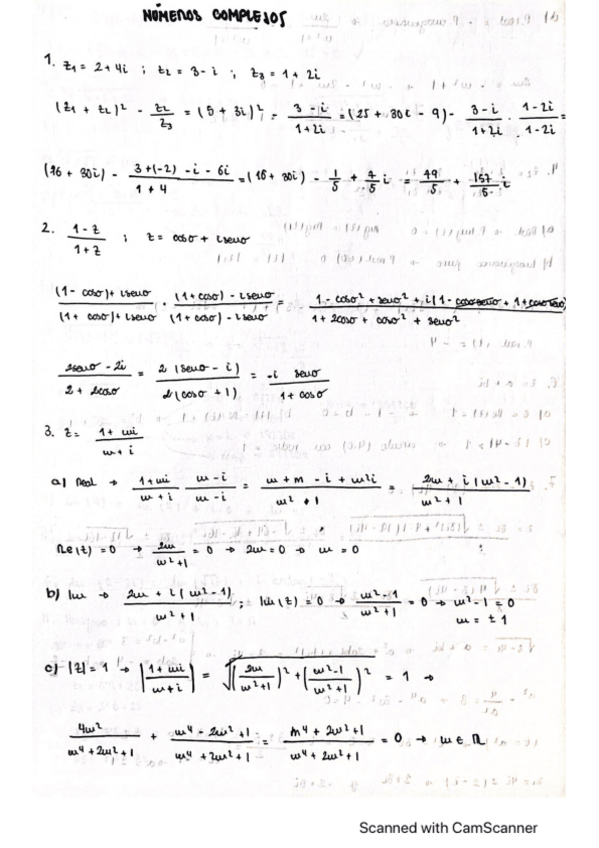 NÚMEROS COMPLEJOS
1. z₁ = 2 + 4i ; z₂ = 3 - i ; z₃ = 1 + 2i
(z₁ + z₂)² - z₂/z₃ = (5 + 3i)² - (3 - i)/(1 + 2i) = (25 + 30i - 9) - (3 - i)/(1 + 2i) · (1 - 2i)/(1 - 2i) =
(16 + 30i) - (3 + (-2) - i - 6i)/(1 + 4) = (16 + 30i) - 1/5 + 7/5 i = 79/5 + 157/5 i
2. (1 - z)/(1 + z) ; z = cosσ + i senσ
((1 - cosσ) + i senσ)/((1 + cosσ) + i senσ) · ((1 + cosσ) - i senσ)/((1 + cosσ) - i senσ) = (1 - cosσ² + senσ² + i(1 - cosσ senσ + 1 + cosσ senσ))/(1 + 2cosσ + cosσ² + senσ²)
(2senσ - 2i)/(2 + 2cosσ) = 2(senσ - i)/2(cosσ + 1) = -i senσ/(1 + cosσ)
3. z = (1 + mi)/(m + i)
a) Real → (1 + mi)/(m + i) (m - i)/(m - i) = (m + m - i + m²i)/(m² + 1) = (2m + i(m² - 1))/(m² + 1)
Re(z) = 0 → 2m/(m² + 1) = 0 → ; 2m = 0 → m = 0
b) Im → (2m + i(m² - 1))/(m² + 1) ; Im(z) = 0 → (m² - 1)/(m² + 1) = 0 → m² - 1 = 0
m = ± 1
c) |z| = 1 → |(1 + mi)/(m + i)| = √((2m/(m² + 1))² + ((m² - 1)/(m² + 1))²) = 1 →
4m²/(m⁴ + 2m² + 1) + (m⁴ - 2m² + 1)/(m⁴ + 2m² + 1) = (m⁴ + 2m² + 1)/(m⁴ + 2m² + 1) = 0 → m ∈ R
Scanned with CamScanner